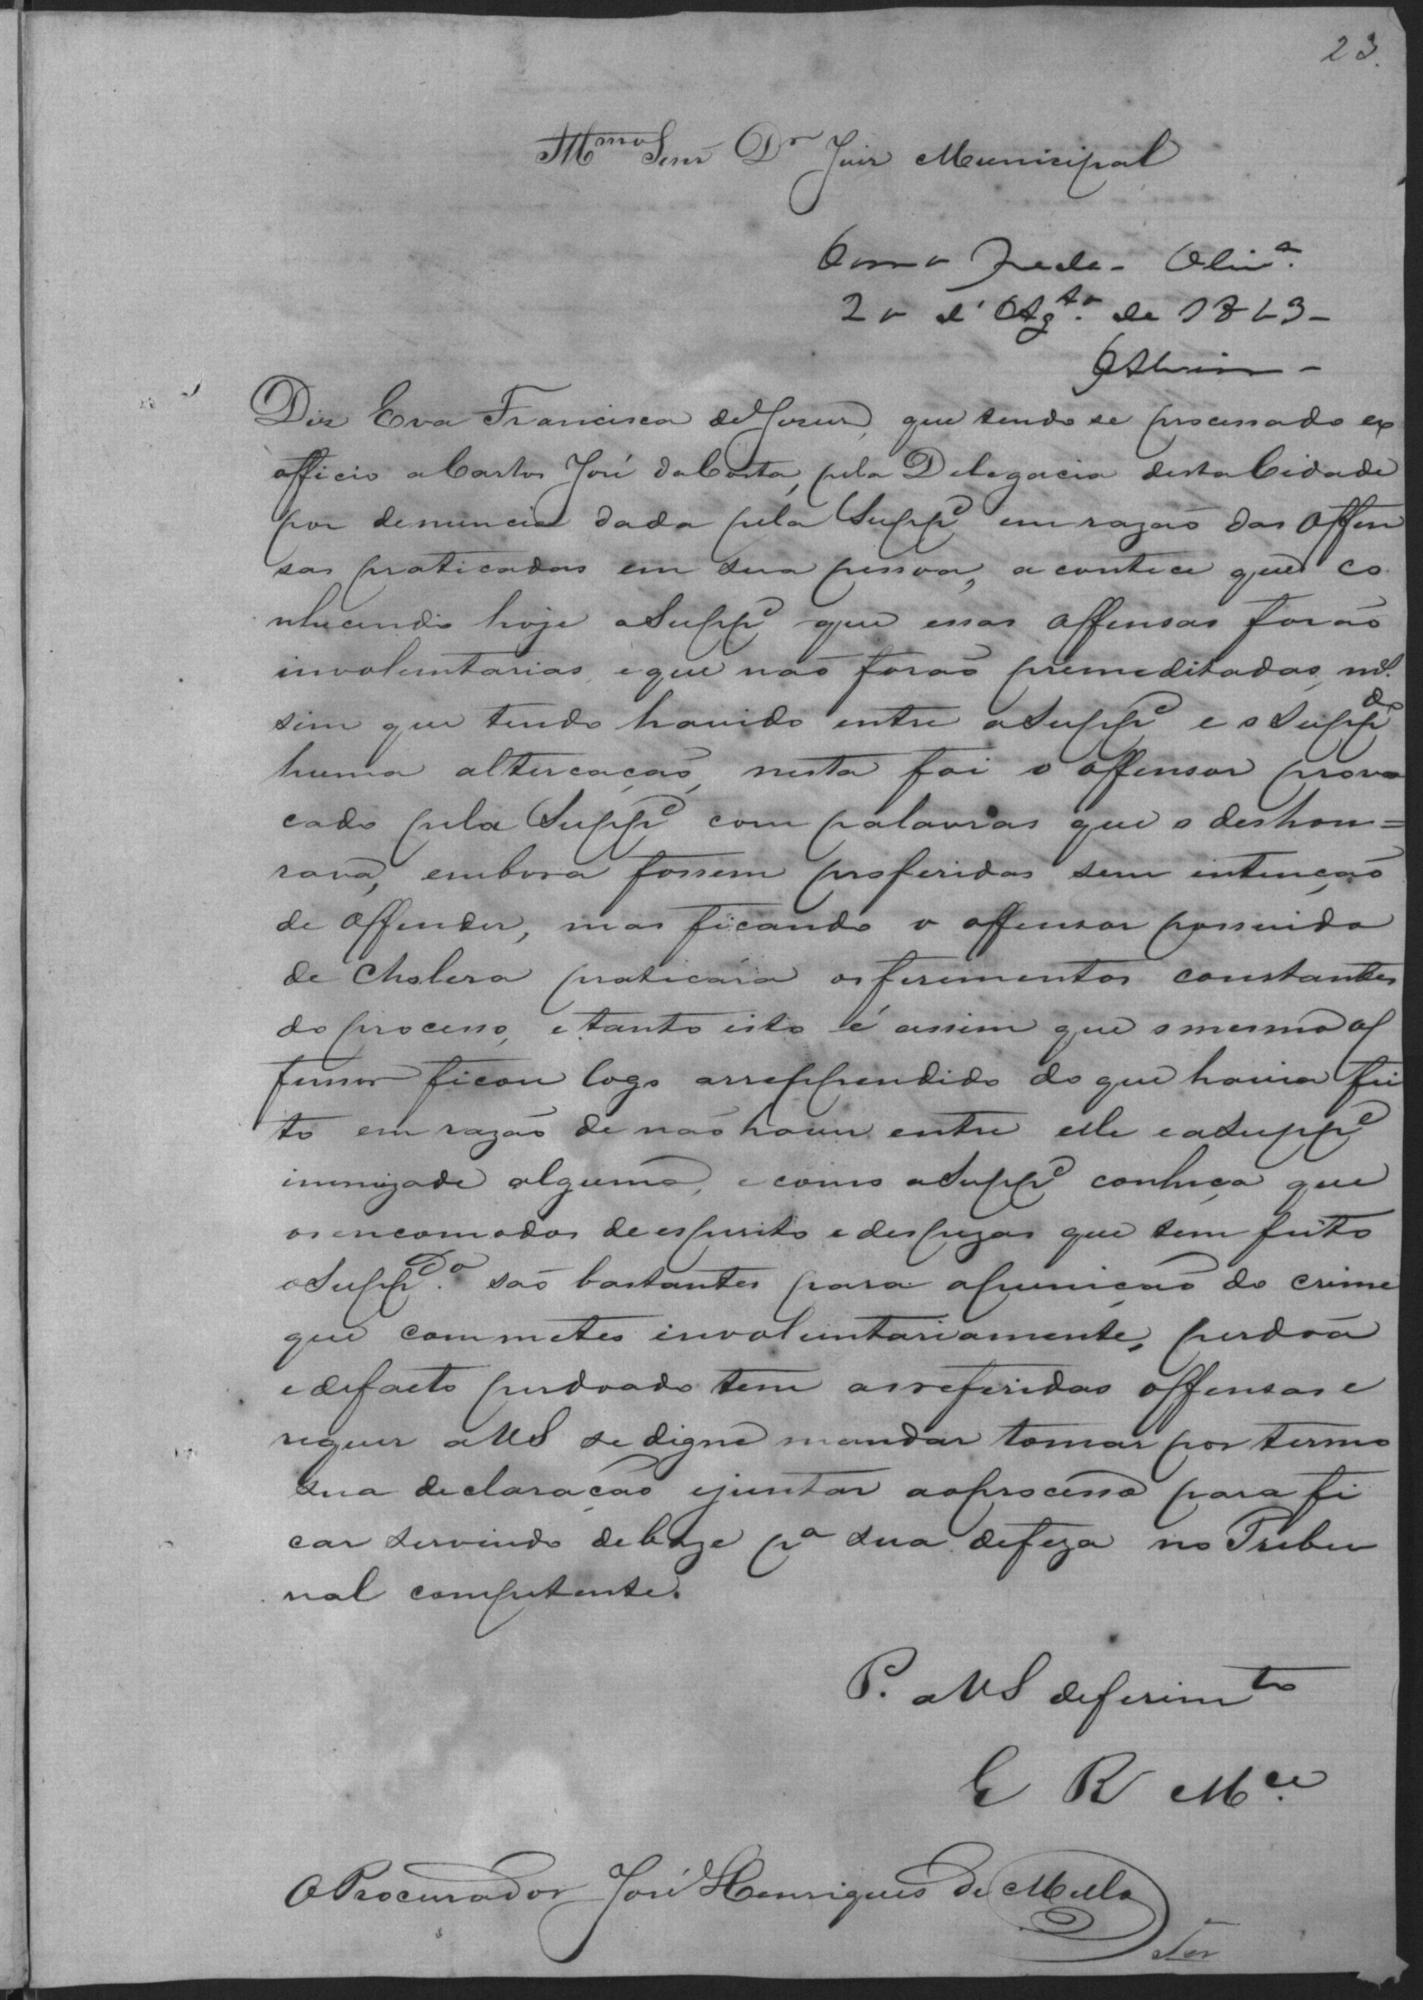 23.
Illmo Senr Dr Juiz Municipal
Como Pede. Olinda
20 d'Agto. de 1863 –
Diz Eva Francisca de Jesus, que tendo se processado ex
officio a Carlos José da Costa, pela Delegacia desta Cidade
por denuncia dada pela Suppe em razaõ das Offen
sas praticadas em sua pessoa, acontece que co
nhecendo hoje a Suppe que essas Offensas foraõ
involuntarias, e que naõ foraõ premeditadas, mas
sim que tendo havido entre a Suppe e o Suppdo
huma altercaçaõ, nesta foi o offensor provo
cado pela Suppe com palavras que o deshon=
rava, embora fossem proferidas sem intençaõ
de Offender, mas ficando o offensor possuido
de Cholera praticára os ferimentos constantes
do processo, e tanto isto é assim que o mesmo of
fensor ficou logo arreppendido do que havia fei
to em razaõ de naõ haver entre elle e a Suppe
inimizade alguma, e como a Suppe conheça que
os encomodos de espirito e despezas que tem feito
o Suppdo. saõ bastantes para a puniçaõ do crime
que commeteo involuntariamente, perdôa
e defacto perdoado tem as referidas offensas e
requer a VS se digne mandar tomar por termo
sua declaraçaõ e juntar ao processo para fi
car servindo de baze pa sua defeza no Tribu
nal competente.
P. a VS deferimto
E R Mce.
O Procurador José Henriques de Mello